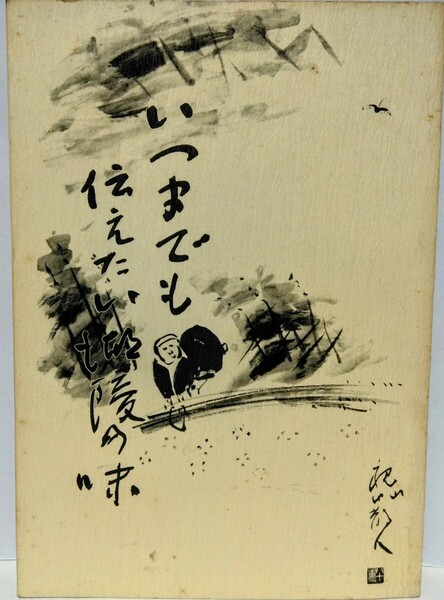 いつまでも
伝えたい
陵の味
散人